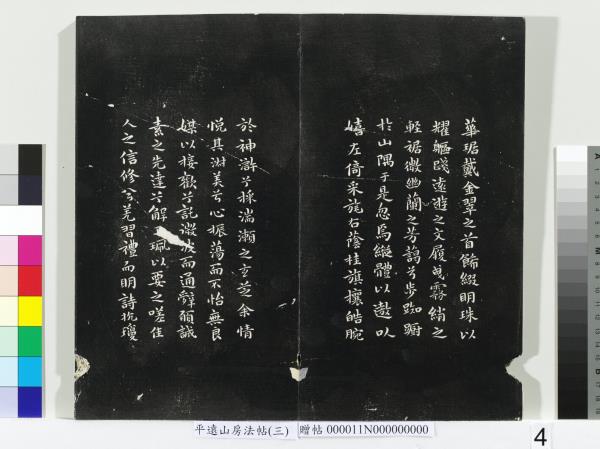 華琚戴金翠之首飾綴明珠以
耀軀踐遠遊之文履曳霧綃之
輕裾微幽蘭之芳藹兮步踟躕
於山隅于是忽焉縱體以遨以
嬉左倚采旄右蔭桂旗攘皓腕
於神滸兮採湍瀨之玄芝余情
悅其淑美兮心振蕩而不怡無良
媒以接歡兮託微波而通辭願誠
素之先達兮解珮以要之嗟佳
人之信修兮羌習禮而明詩抗瓊
平遠山房法帖(三)
贈帖 000011N000000000
4